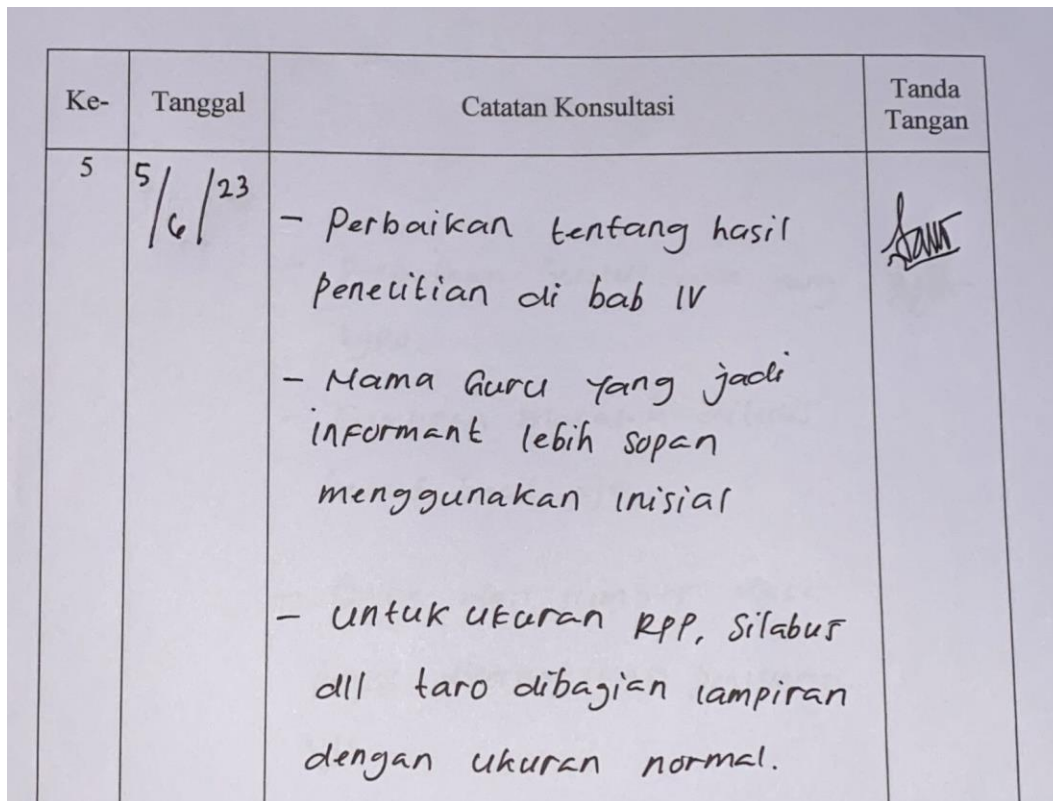 Ke- Tanggal Catatan Konsultasi Tanda Tangan
5 5/6/23
- Perbaikan tentang hasil
penelitian di bab IV
- Nama Guru yang jadi
informant lebih sopan
menggunakan inisial
- untuk ukuran RPP, Silabus
dll taro dibagian lampiran
dengan ukuran normal.